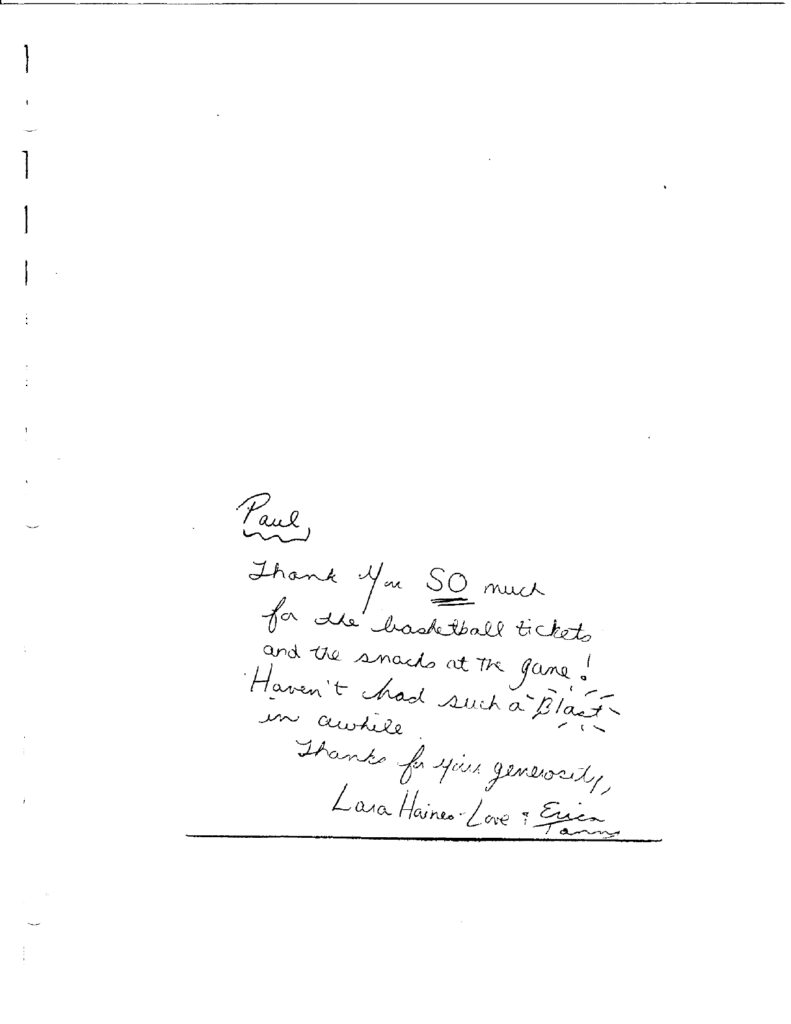 Paul,
Thank you SO much
for the basketball tickets
and the snacks at the game!
Haven't had such a Blast
in awhile.
Thanks for your generosity,
Lara Haines-Love & Erica